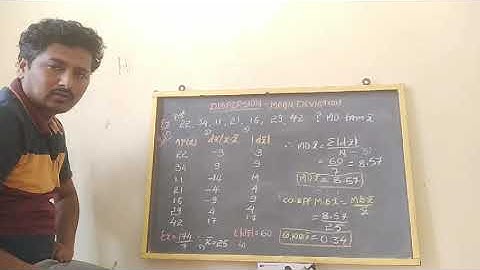 DISPERSION - MEAN DEVIATION
Ex 22, 34, 11, 21, 16, 29, 42 MD from x̄
dx/x-x̄ |dx̄|
22 -3 3
34 9 9
11 -14 14
21 -4 4
16 -9 9
29 4 4
42 17 17
Σx = 174/7 x̄ = 25 Σ|dx̄| = 60
∴ MDx̄ = Σ|dx̄|/N
= 60/7 = 8.57
MDx̄ = 8.57
∴ co.eff M.D.x̄ = M.D.x̄/x̄
= 8.57/25
= 0.34